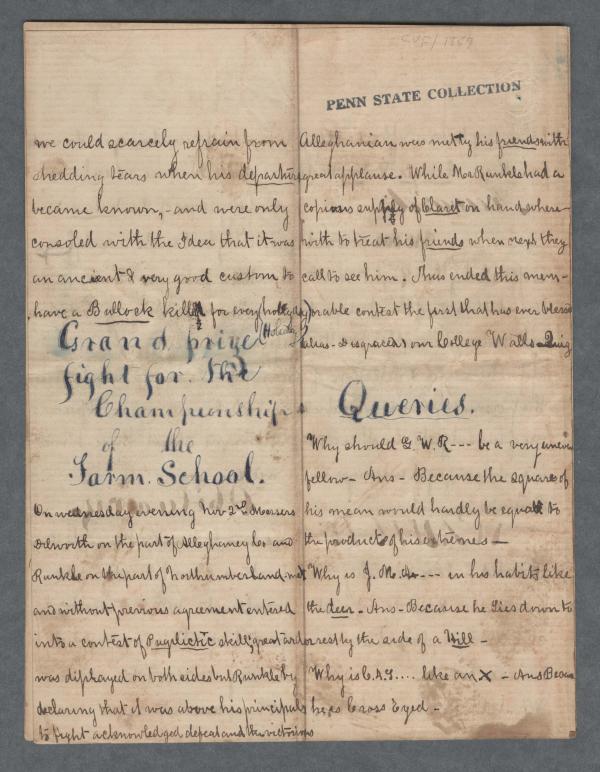 CVF/1859
PENN STATE COLLECTION
we could scarcely refrain from
shedding tears when his departure
became known, - and were only
consoled with the Idea that it was
an ancient & very good custom to
have a Bullock killed for every holiday
(Holiday)
Grand prize
fight for the
Championship
of the
Farm School.
On wednesday evening Nov 2d Messers
Dilworth on the part of Alleghaney Co and
Runkle on the part of Northumberland met
and without previous agreement entered
into a contest of Pugilictic skill, great ardor
was displayed on both sides but Runkle by
declaring that it was above his principals
to fight acknowledged defeat and the victorious
Alleghanian was met by his friends with
great applause. While Mor Runkle had a
copious supply of Claret on hand where-
with to treat his friends when next they
call to see him. Thus ended this mem-
orable contest the first that has ever blessed
alias - Disgraced our College Walls -
Queries.
Why should G. W. R--- be a very uneven
fellow - Ans - Because the square of
his mean would hardly be equal to
the product of his extremes -
Why is J. M. --- in his habits like
the deer - Ans - Because he lies down to
rest by the side of a Hill -
Why is C. A. .... like an X - Ans Because
he is Cross Eyed -